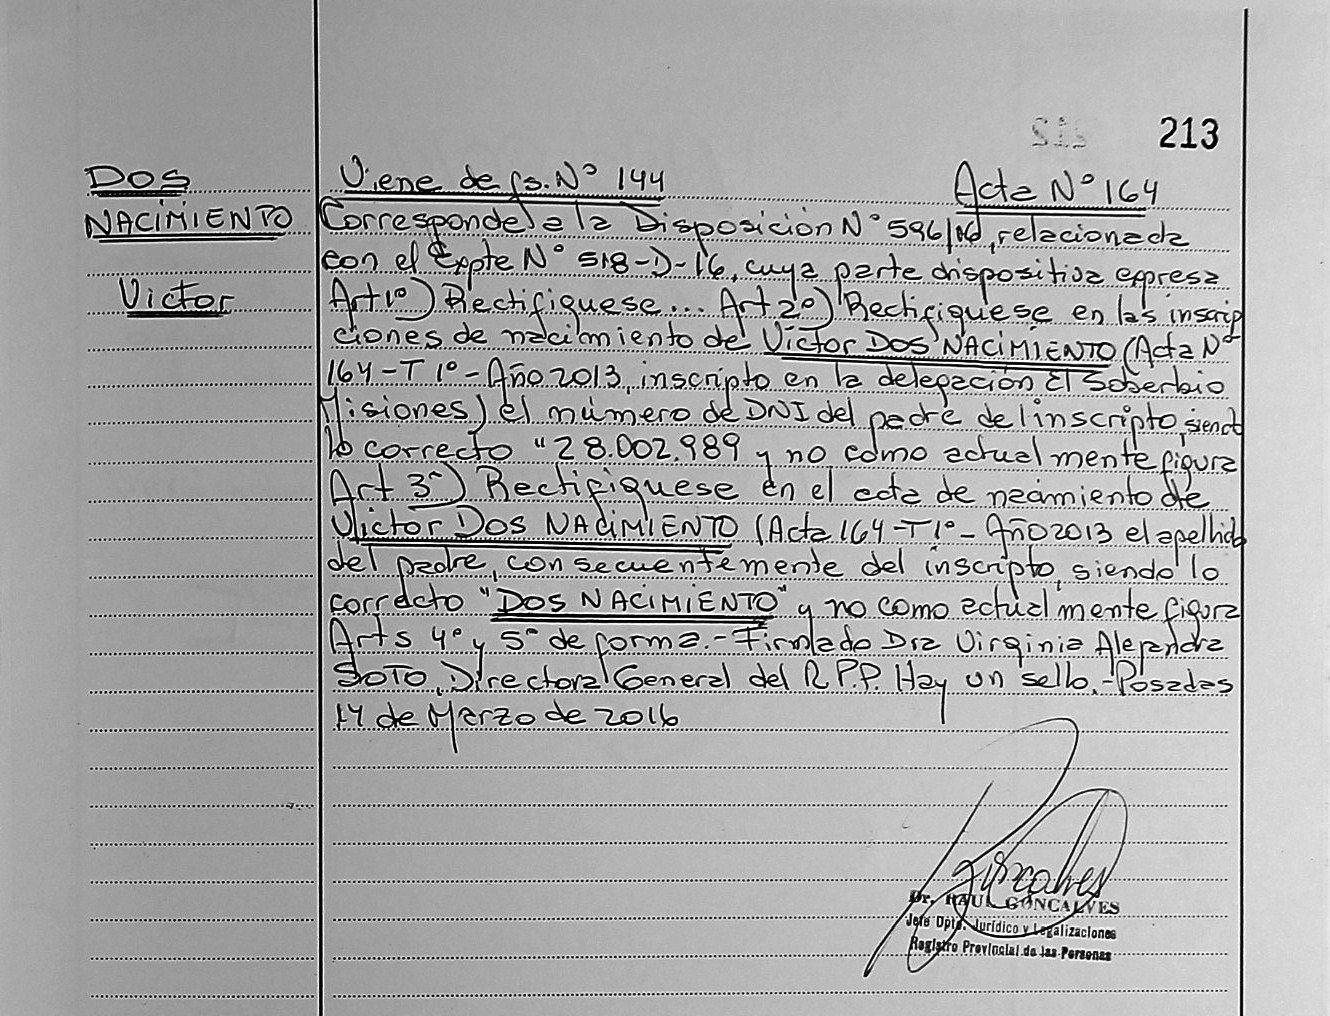 213
DOS
NACIMIENTO
Victor
Viene de fs. Nº 144
Acta Nº 164
Corresponde a la Disposición Nº 596/16, relacionada
con el Expte Nº 518-D-16, cuya parte dispositiva expresa
Art 1º) Rectifiquese... Art 2º) Rectifiquese en las inscrip
ciones de nacimiento de Victor DOS NACIMIENTO (Acta Nº
164-T 1º-Año 2013, inscripto en la delegación El Soberbio
Misiones) el número de DNI del padre del inscripto, siend
lo correcto "28.002.989 y no como actualmente figura
Art 3º) Rectifiquese en el acta de nacimiento de
Victor DOS NACIMIENTO (Acta 164-T1º-Año 2013 el apellido
del padre, consecuentemente del inscripto, siendo lo
correcto "DOS NACIMIENTO" y no como actualmente figura
Arts 4º y 5º de forma.- Firmado Dra Virginia Alejandra
SOTO, Directora General del R.P.P. Hay un sello.-Posadas
14 de Marzo de 2016
Dr. RAUL GONCALVES
Jefe Dpto. Jurídico y Legalizaciones
Registro Provincial de las Personas